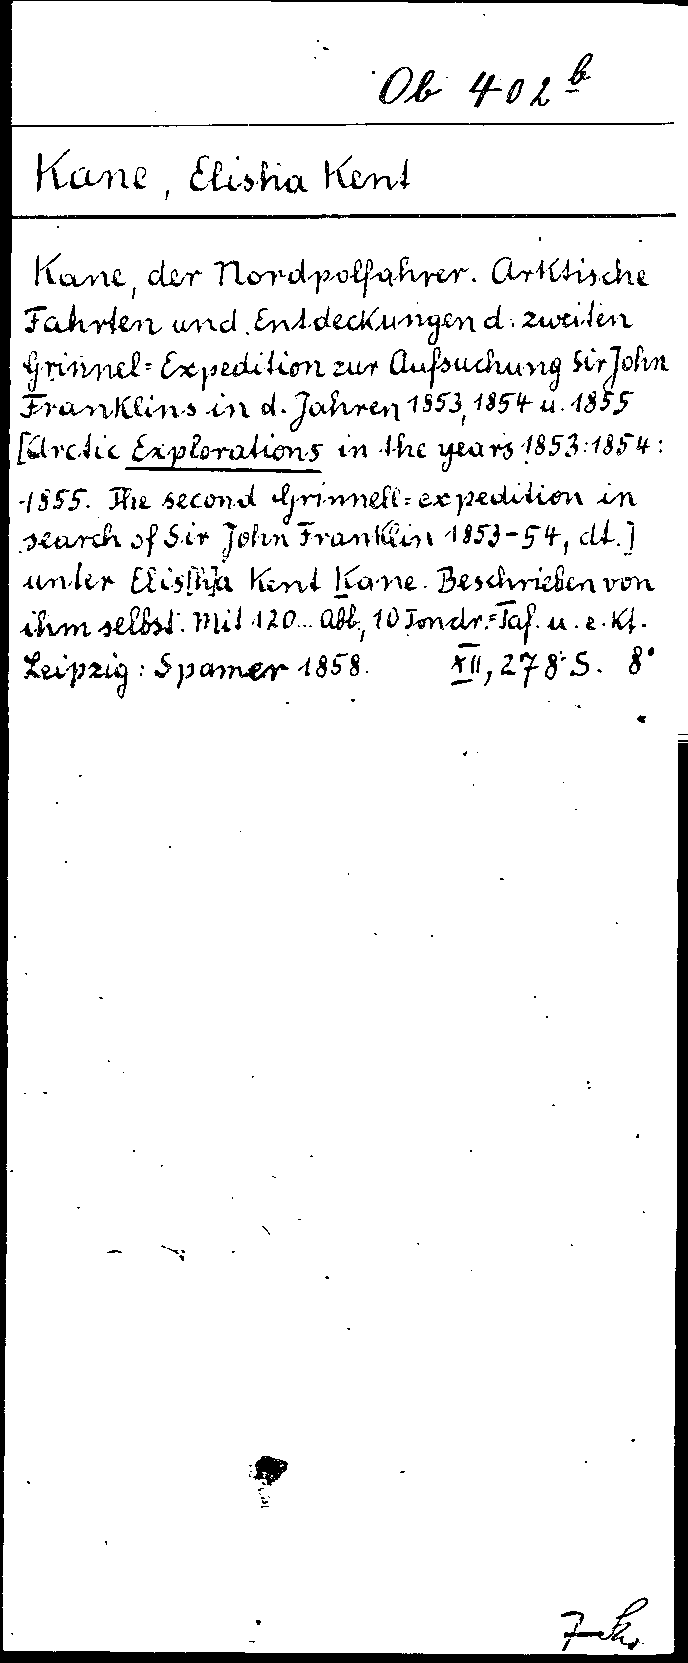 Ob 402 b
Kane, Elisha Kent
Kane, der Nordpolfahrer. Arktische
Fahrten und Entdeckungen d. zweiten
Grinnel=Expedition zur Aufsuchung Sir John
Franklins in d. Jahren 1853, 1854 u. 1855
[Arctic Explorations in the years 1853:1854:
1855. The second Grinnell=expedition in
search of Sir John Franklin 1853-54, dt.]
unter Elis[h]a Kent Kane. Beschrieben von
ihm selbst. Mit 120... Abb., 10 Tondr.=Taf. u. e. Kt.
Leipzig: Spamer 1858. XII, 278 S. 8°